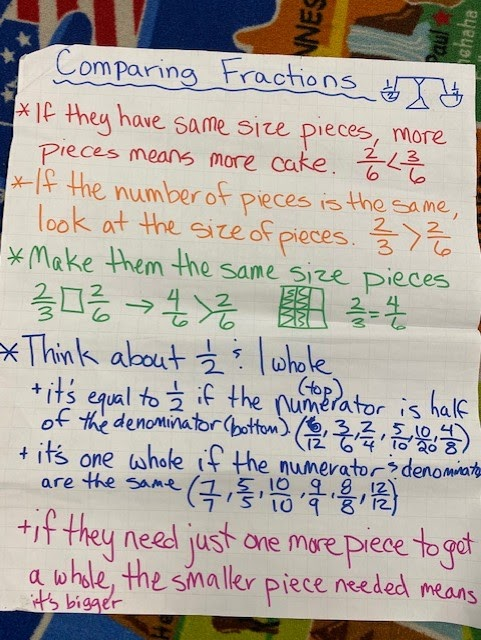 NNES
Paul
hehaha
Comparing Fractions
1/2 1/4
*If they have same size pieces, more
pieces means more cake. 2/6 < 3/6
*If the number of pieces is the same,
look at the size of pieces. 2/3 > 2/6
*Make them the same size pieces
2/3 □ 2/6 → 4/6 > 2/6 2/3 = 4/6
*Think about 1/2 & 1 whole
+it's equal to 1/2 if the numerator (top) is half
of the denominator (bottom) (6/12, 3/6, 2/4, 5/10, 10/20, 4/8)
+it's one whole if the numerator & denominato
are the same (7/7, 5/5, 10/10, 9/9, 8/8, 12/12)
+if they need just one more piece to get
a whole, the smaller piece needed means
it's bigger